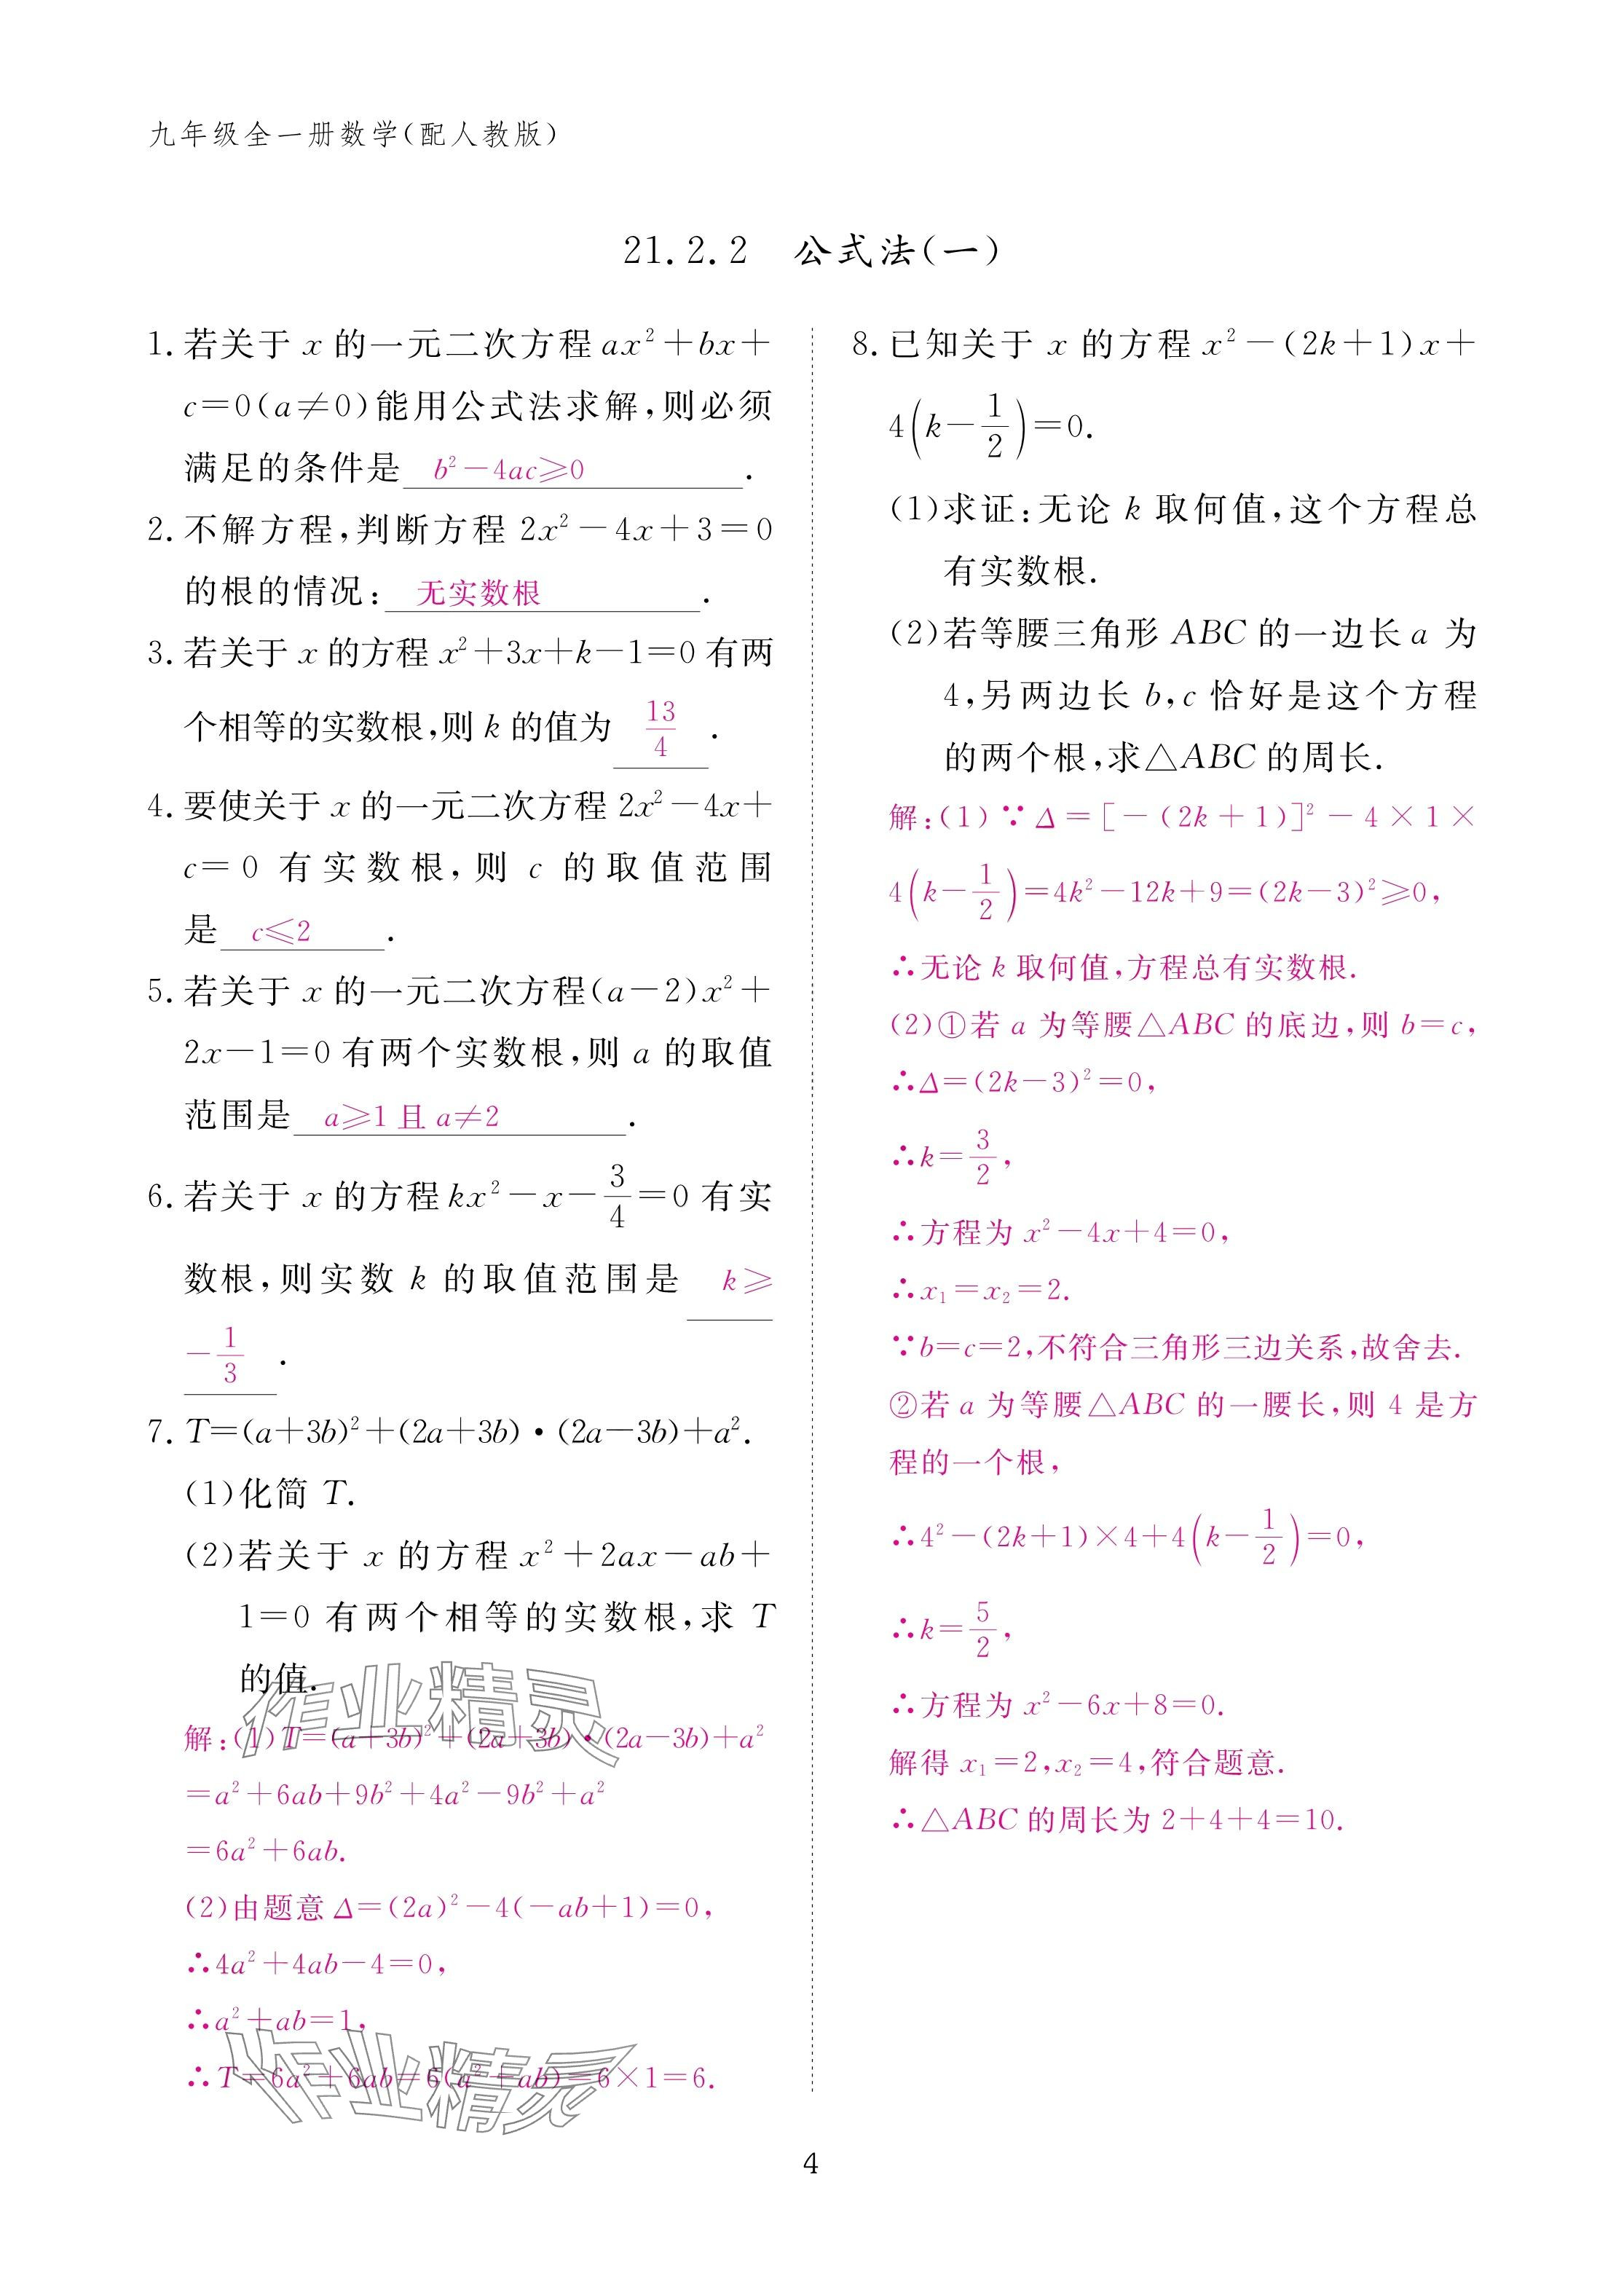 九年级全一册数学(配人教版)
21.2.2 公式法(一)
1. 若关于 x 的一元二次方程 ax²+bx+
c=0(a≠0)能用公式法求解,则必须
满足的条件是 b²-4ac≥0 .
2. 不解方程,判断方程 2x²-4x+3=0
的根的情况: 无实数根 .
3. 若关于 x 的方程 x²+3x+k-1=0 有两
个相等的实数根,则 k 的值为 13/4 .
4. 要使关于 x 的一元二次方程 2x²-4x+
c=0 有实数根,则 c 的取值范围
是 c≤2 .
5. 若关于 x 的一元二次方程(a-2)x²+
2x-1=0 有两个实数根,则 a 的取值
范围是 a≥1 且 a≠2 .
6. 若关于 x 的方程 kx²-x-3/4=0 有实
数根,则实数 k 的取值范围是 k≥
-1/3 .
7. T=(a+3b)²+(2a+3b)·(2a-3b)+a².
(1)化简 T.
(2)若关于 x 的方程 x²+2ax-ab+
1=0 有两个相等的实数根,求 T
的值.
解:(1)T=(a+3b)²+(2a+3b)·(2a-3b)+a²
=a²+6ab+9b²+4a²-9b²+a²
=6a²+6ab.
(2)由题意 Δ=(2a)²-4(-ab+1)=0,
∴4a²+4ab-4=0,
∴a²+ab=1,
∴T=6a²+6ab=6(a²+ab)=6×1=6.
作业精灵
作业精灵
8. 已知关于 x 的方程 x²-(2k+1)x+
4(k-1/2)=0.
(1)求证:无论 k 取何值,这个方程总
有实数根.
(2)若等腰三角形 ABC 的一边长 a 为
4,另两边长 b,c 恰好是这个方程
的两个根,求△ABC 的周长.
解:(1)∵Δ=[-(2k+1)]²-4×1×
4(k-1/2)=4k²-12k+9=(2k-3)²≥0,
∴无论 k 取何值,方程总有实数根.
(2)①若 a 为等腰△ABC 的底边,则 b=c,
∴Δ=(2k-3)²=0,
∴k=3/2,
∴方程为 x²-4x+4=0,
∴x₁=x₂=2.
∵b=c=2,不符合三角形三边关系,故舍去.
②若 a 为等腰△ABC 的一腰长,则 4 是方
程的一个根,
∴4²-(2k+1)×4+4(k-1/2)=0,
∴k=5/2,
∴方程为 x²-6x+8=0.
解得 x₁=2,x₂=4,符合题意.
∴△ABC 的周长为 2+4+4=10.
4